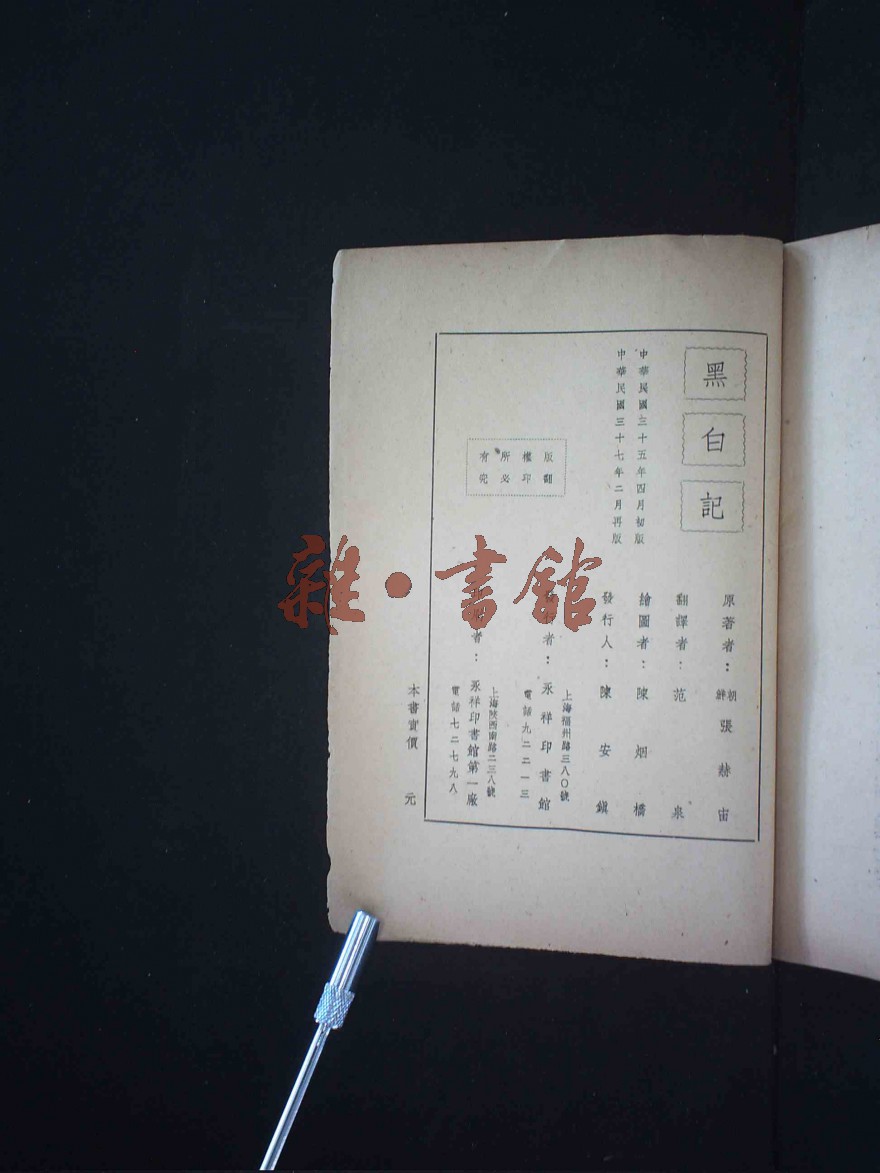 黑白記
中華民國三十五年四月初版
中華民國三十七年二月再版
版權所有
翻印必究
原著者：朝鮮 張赫宙
翻譯者：范泉
繪圖者：陳烟橋
發行人：陳安鎭
者：永祥印書館
上海福州路三八〇號
電話九二二一三
者：永祥印書館第一廠
上海陜西南路二三八號
電話七二七九八
本書實價 元
雜·書館